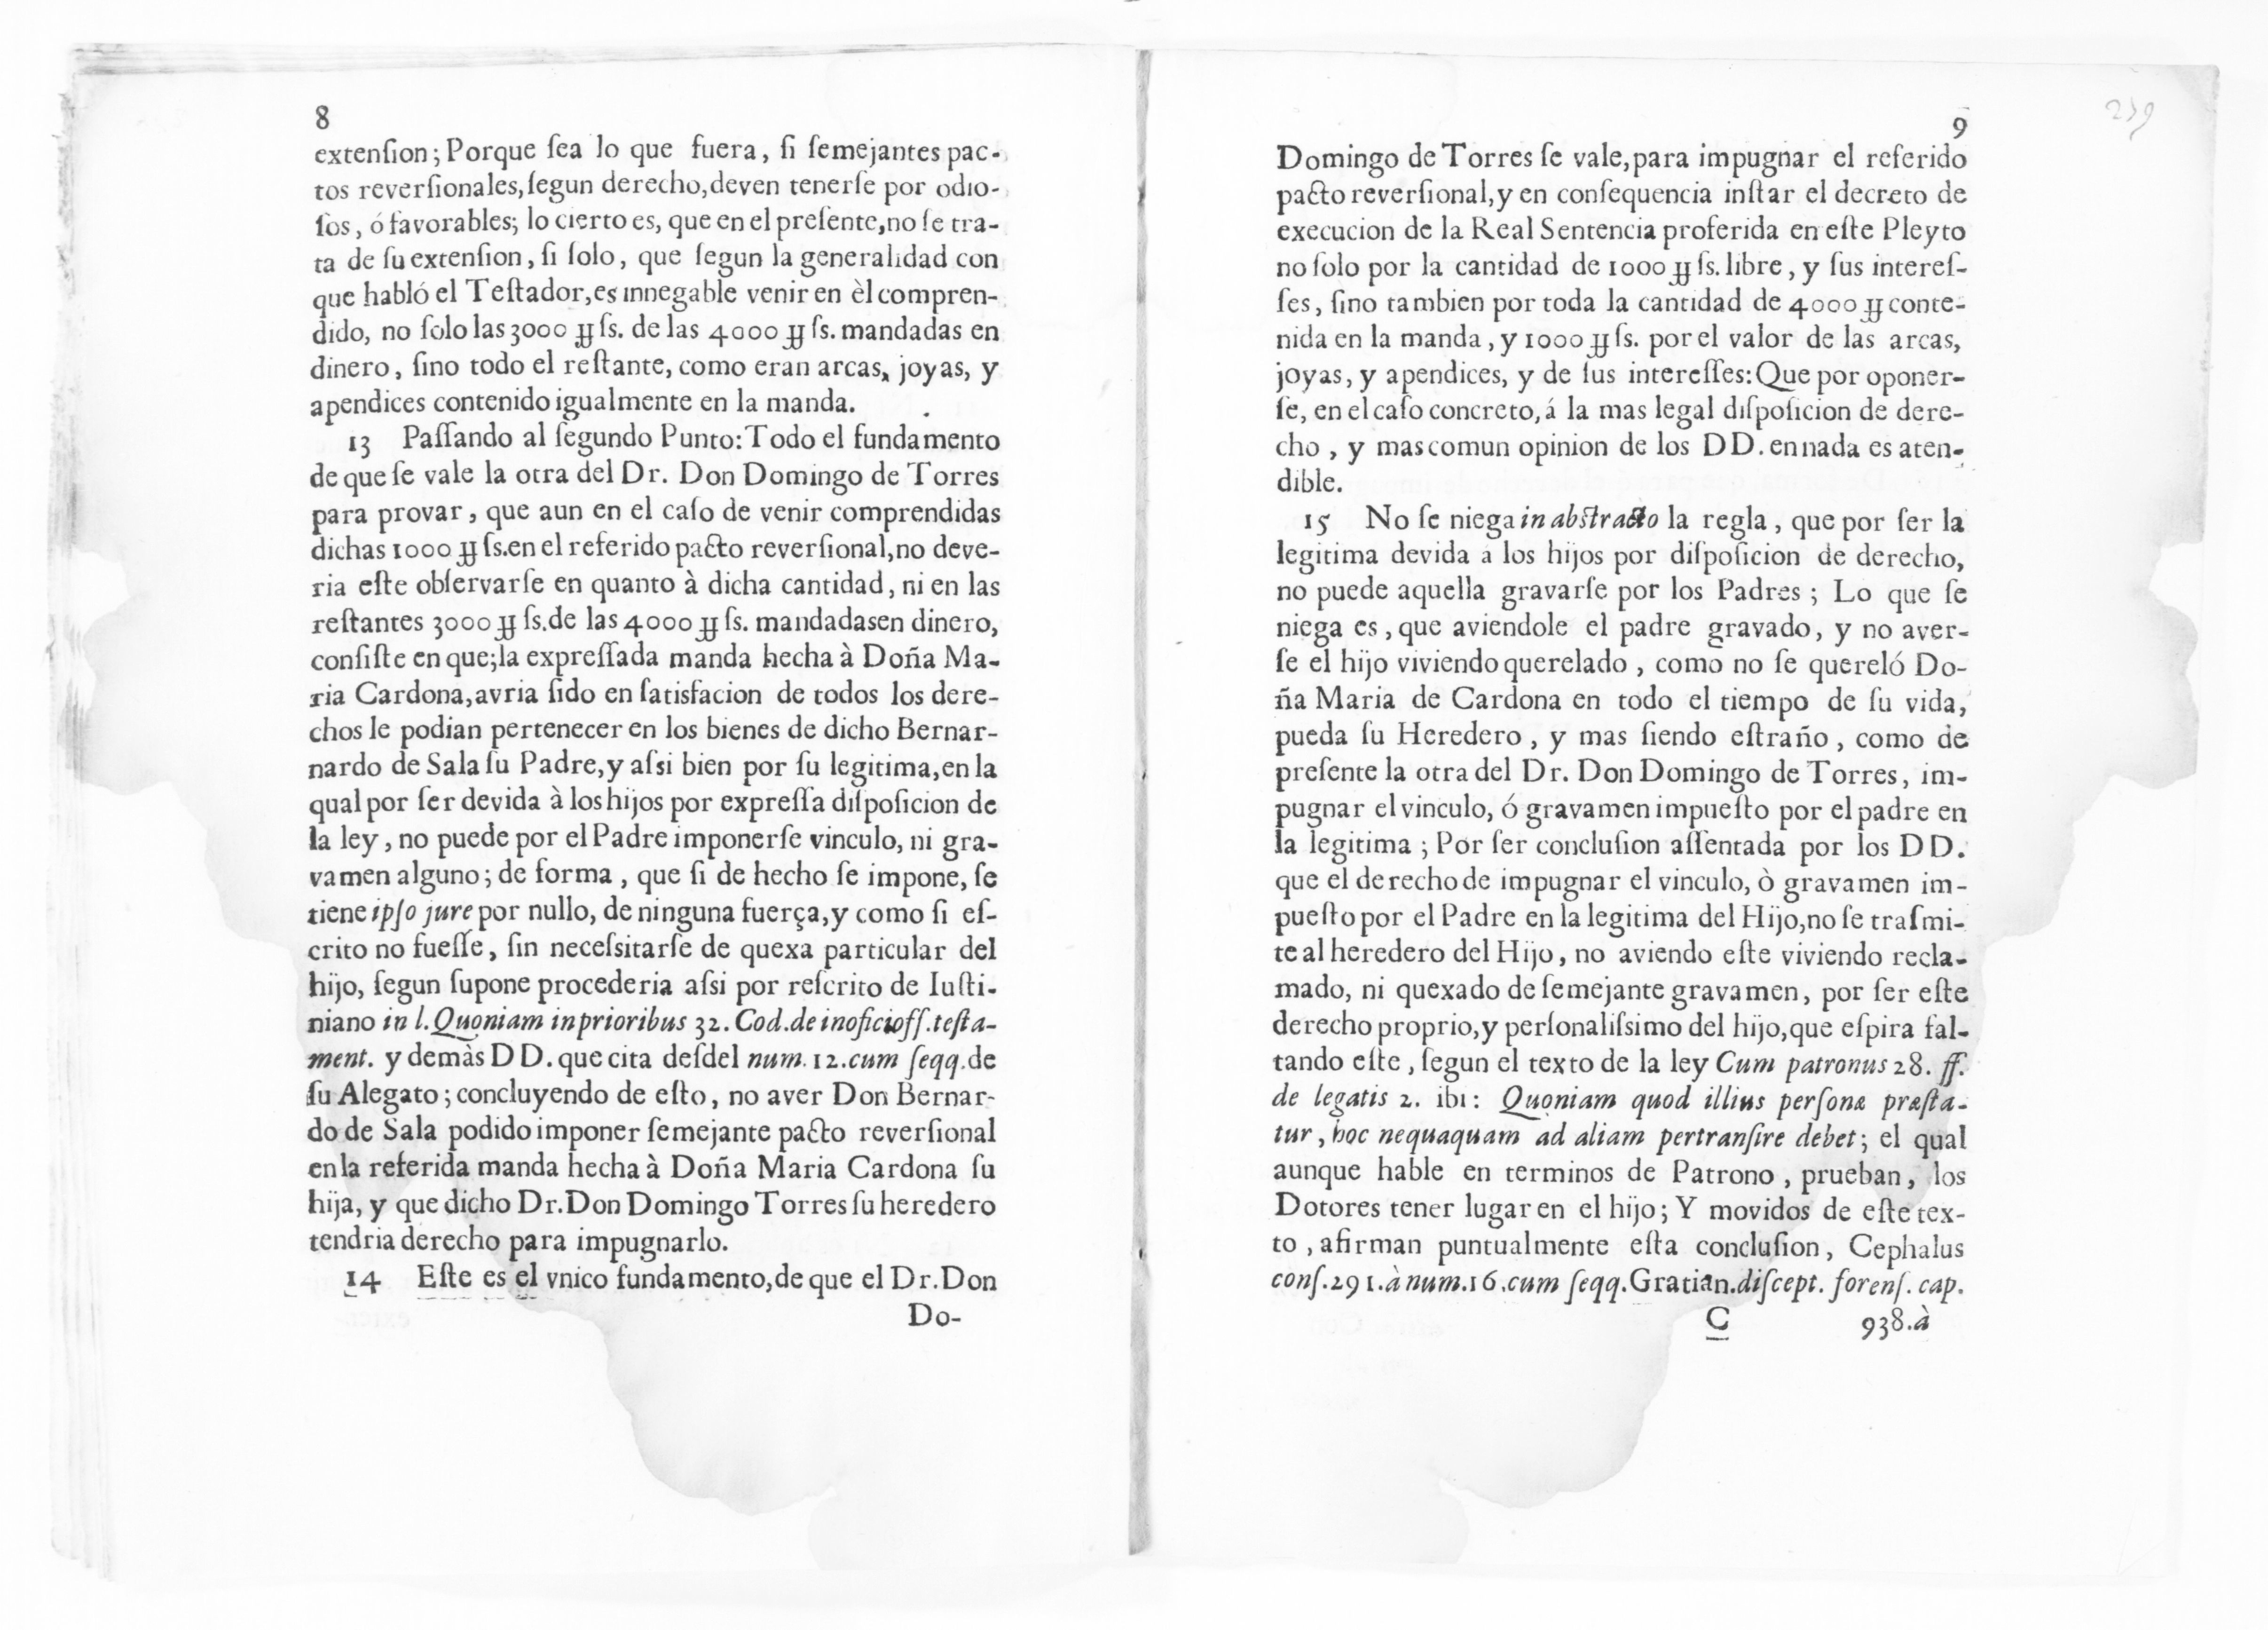 8
extenſion; Porque ſea lo que fuera, ſi ſemejantes pac-
tos reverſionales, ſegun derecho, deven tenerſe por odio-
ſos, ó favorables; lo cierto es, que en el preſente, no ſe tra-
ta de ſu extenſion, ſi ſolo, que ſegun la generalidad con
que habló el Teſtador, es innegable venir en èl compren-
dido, no ſolo las 3000 ꝷ ſs. de las 4000 ꝷ ſs. mandadas en
dinero, ſino todo el reſtante, como eran arcas, joyas, y
apendices contenido igualmente en la manda.
13 Paſſando al ſegundo Punto: Todo el fundamento
de que ſe vale la otra del Dr. Don Domingo de Torres
para provar, que aun en el caſo de venir comprendidas
dichas 1000 ꝷ ſs. en el referido pacto reverſional, no deve-
ria eſte obſervarſe en quanto à dicha cantidad, ni en las
reſtantes 3000 ꝷ ſs. de las 4000 ꝷ ſs. mandadas en dinero,
conſiſte en que; la expreſſada manda hecha à Doña Ma-
ria Cardona, avria ſido en ſatisfacion de todos los dere-
chos le podian pertenecer en los bienes de dicho Bernar-
nardo de Sala ſu Padre, y aſsi bien por ſu legitima, en la
qual por ſer devida à los hijos por expreſſa diſpoſicion de
la ley, no puede por el Padre imponerſe vinculo, ni gra-
vamen alguno; de forma, que ſi de hecho ſe impone, ſe
tiene ipſo jure por nullo, de ninguna fuerça, y como ſi eſ-
crito no fueſſe, ſin neceſsitarſe de quexa particular del
hijo, ſegun ſupone procederia aſsi por reſcrito de Iuſti-
niano in l. Quoniam in prioribus 32. Cod. de inoficioſſ. teſta-
ment. y demàs DD. que cita deſdel num. 12. cum ſeqq. de
ſu Alegato; concluyendo de eſto, no aver Don Bernar-
do de Sala podido imponer ſemejante pacto reverſional
en la referida manda hecha à Doña Maria Cardona ſu
hija, y que dicho Dr. Don Domingo Torres ſu heredero
tendria derecho para impugnarlo.
14 Eſte es el vnico fundamento, de que el Dr. Don
Do-
239
9
Domingo de Torres ſe vale, para impugnar el referido
pacto reverſional, y en conſequencia inſtar el decreto de
execucion de la Real Sentencia proferida en eſte Pleyto
no ſolo por la cantidad de 1000 ꝷ ſs. libre, y ſus intereſ-
ſes, ſino tambien por toda la cantidad de 4000 ꝷ conte-
nida en la manda, y 1000 ꝷ ſs. por el valor de las arcas,
joyas, y apendices, y de ſus intereſſes: Que por oponer-
ſe, en el caſo concreto, á la mas legal diſpoſicion de dere-
cho, y mas comun opinion de los DD. en nada es aten-
dible.
15 No ſe niega in abstracto la regla, que por ſer la
legitima devida á los hijos por diſpoſicion de derecho,
no puede aquella gravarſe por los Padres; Lo que ſe
niega es, que aviendole el padre gravado, y no aver-
ſe el hijo viviendo querelado, como no ſe quereló Do-
ña Maria de Cardona en todo el tiempo de ſu vida,
pueda ſu Heredero, y mas ſiendo eſtraño, como de
preſente la otra del Dr. Don Domingo de Torres, im-
pugnar el vinculo, ó gravamen impueſto por el padre en
la legitima; Por ſer concluſion aſſentada por los DD.
que el derecho de impugnar el vinculo, ò gravamen im-
pueſto por el Padre en la legitima del Hijo, no ſe traſmi-
te al heredero del Hijo, no aviendo eſte viviendo recla-
mado, ni quexado de ſemejante gravamen, por ſer eſte
derecho proprio, y perſonaliſsimo del hijo, que eſpira fal-
tando eſte, ſegun el texto de la ley Cum patronus 28. ff.
de legatis 2. ibi: Quoniam quod illius perſonæ præſta-
tur, hoc nequaquam ad aliam pertranſire debet; el qual
aunque hable en terminos de Patrono, prueban, los
Dotores tener lugar en el hijo; Y movidos de eſte tex-
to, afirman puntualmente eſta concluſion, Cephalus
conſ. 291. à num. 16. cum ſeqq. Gratian. diſcept. forenſ. cap.
C 938. à